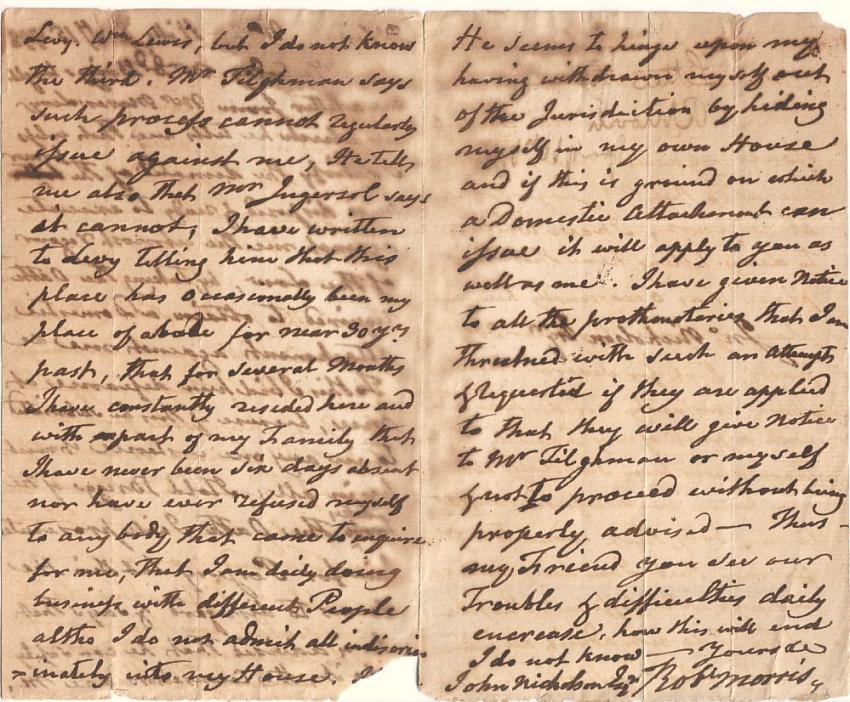 Levy. Wm Lewis, but I do not know
the third. Mr Tilghman says
such process cannot regularly
issue against me, He tells
me also that Mr Ingersol says
it cannot, I have written
to Levy telling him that this
place has occasionally been my
place of abode for near 30 yrs
past, that for several Months
I have constantly resided here and
with part of my Family that
I have never been six days absent
nor have ever refused myself
to any body that came to enquire
for me, that I am daily doing
business with different People
altho I do not admit all indiscrim
=inately into my House.
He seems to hinge upon my
having withdrawn myself out
of the Jurisdiction by hiding
myself in my own House
and if this is ground on which
a Domestic Attachment can
issue it will apply to you as
well as me. I have given Notice
to all the prothonotaries that I am
threatned with such an attempt
& requested if they are applied
to that they will give Notice
to Mr Tilghman or myself
& not to proceed without being
properly advised — Thus —
my Friend you see our
Troubles & difficulties daily
encrease, how this will end
I do not know — Yours &c
John Nicholson Esqr Robt Morris